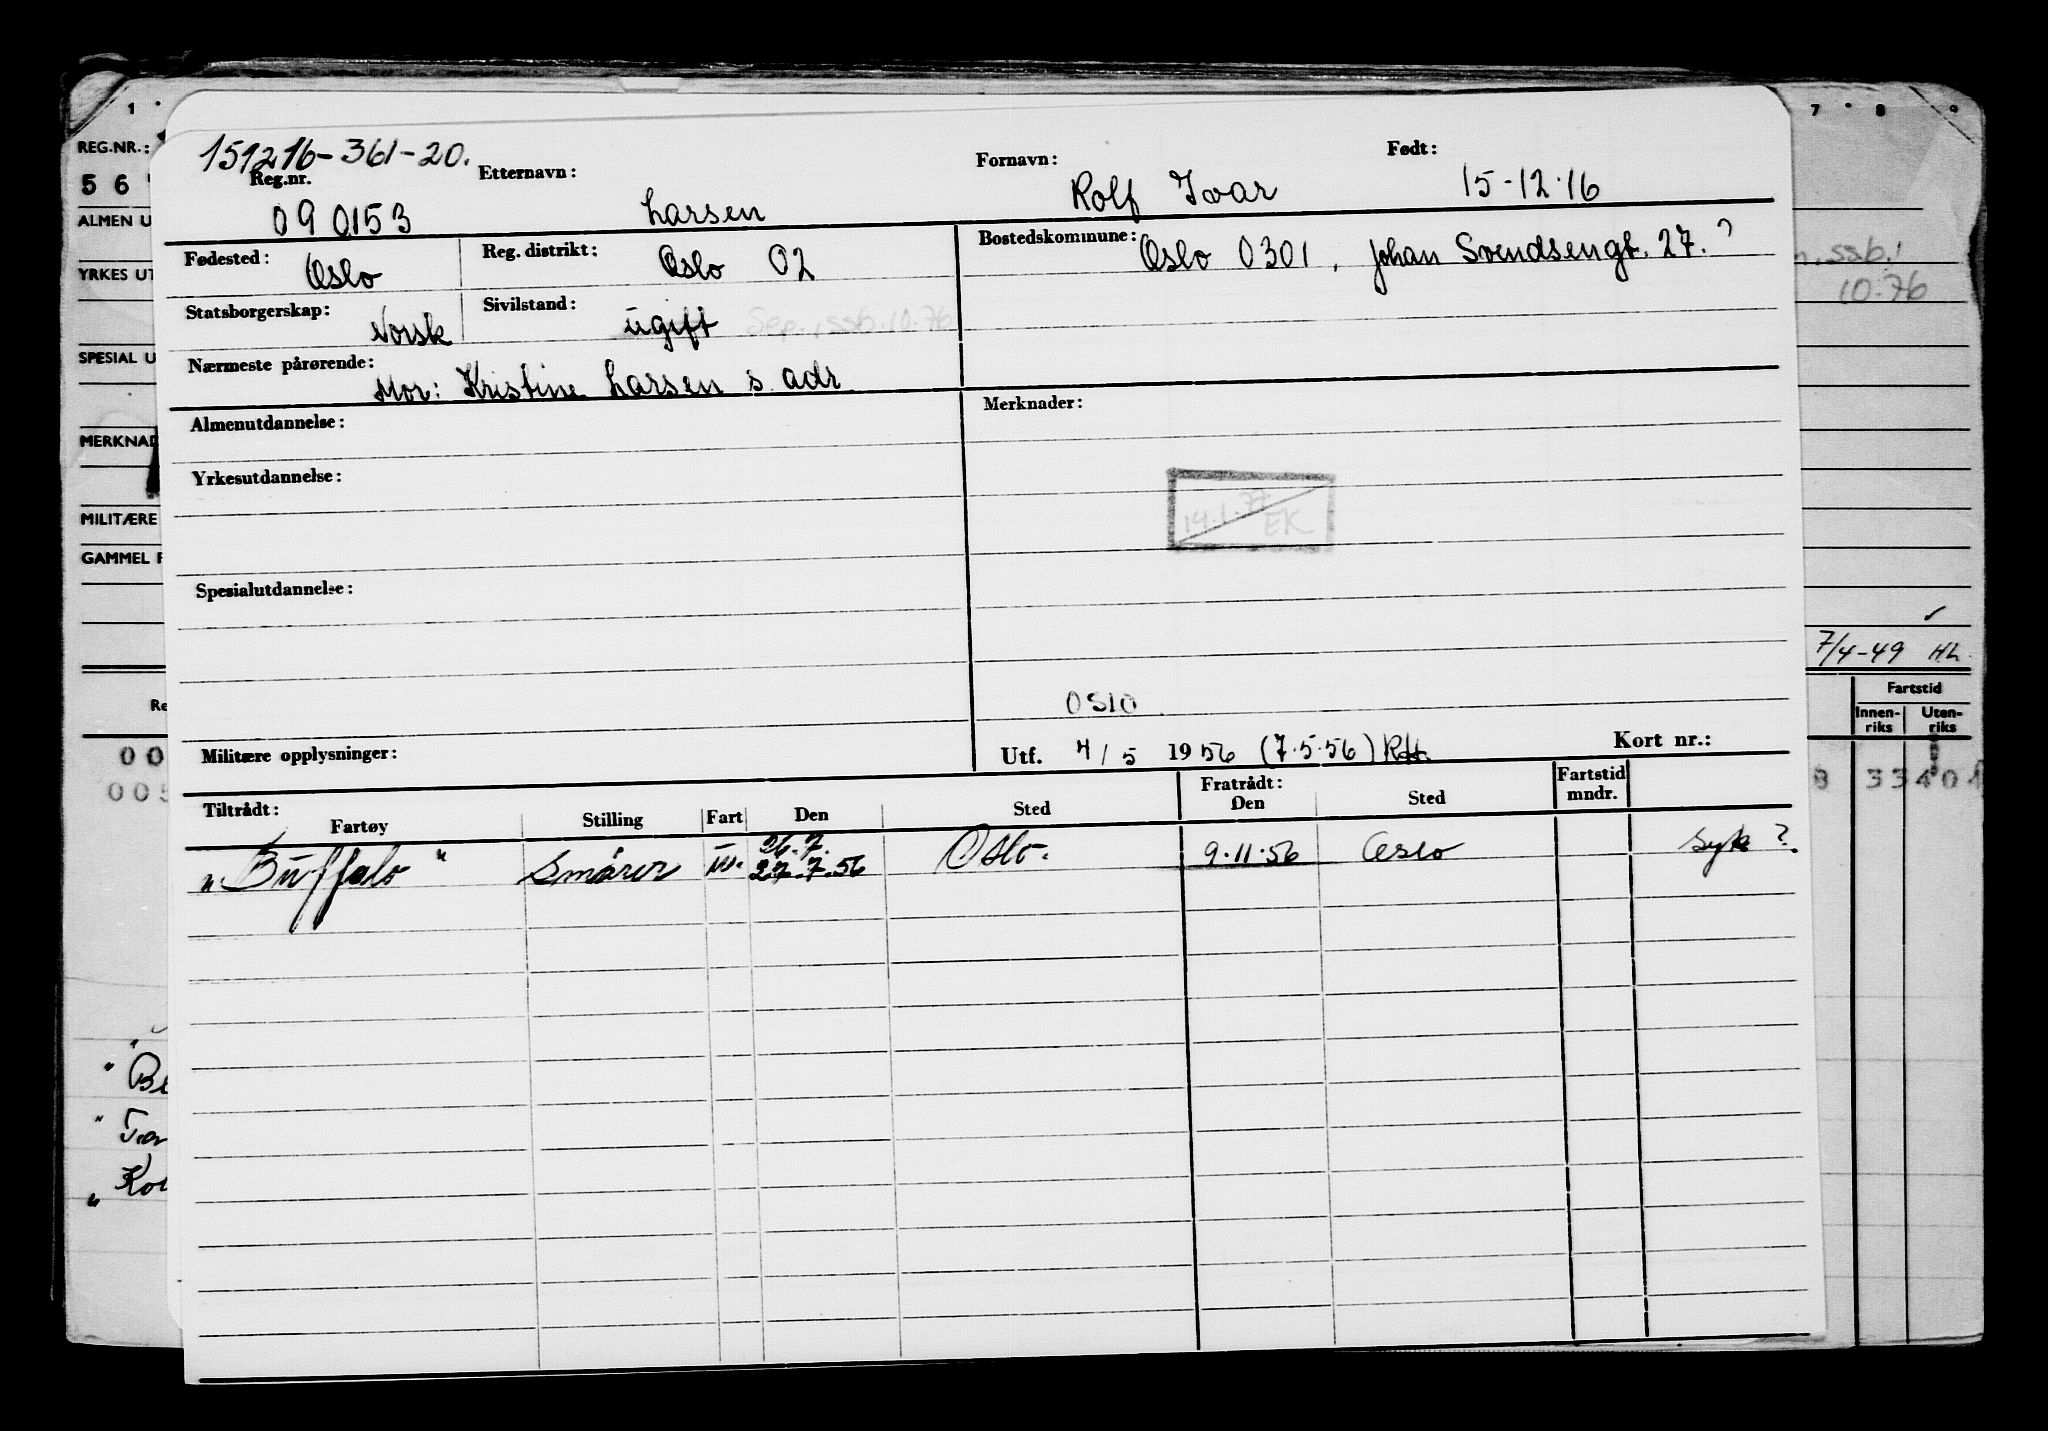 1 7 8 9
REG.NR.:
151216-361-20.
Reg.nr. Etternavn: Fornavn: Født:
5 6
090153 Larsen Rolf Ivar 15-12-16
ALMEN U
Fødested: Oslo Reg. distrikt: Oslo 02 Bostedskommune: Oslo 0301, Johan Svendsengt. 27.?
YRKES UT ssb.
10.76
Statsborgerskap: Norsk Sivilstand: ugift Sep., ssb. 10.76
SPESIAL U
Nærmeste pårørende: Mor: Kristine Larsen s. adr
Almenutdannelse: Merknader:
MERKNAD
Yrkesutdannelse:
14.1.77 EK
MILITÆRE
GAMMEL F
Spesialutdannelse:
7/4-49 HL
Oslo
Fartstid
Innen-riks Uten-riks
Re
Militære opplysninger: Utf. 4/5 1956 (7.5.56) Kort nr.:
00
005 8 33401
Tiltrådt: Fratrådt: Fartstid mndr.
Fartøy Stilling Fart Den Sted Den Sted
26.7.
"Buffalo" Smører 27.7.56 Oslo. 9.11.56 Oslo Syk?
" Be
" Tar
" Kou